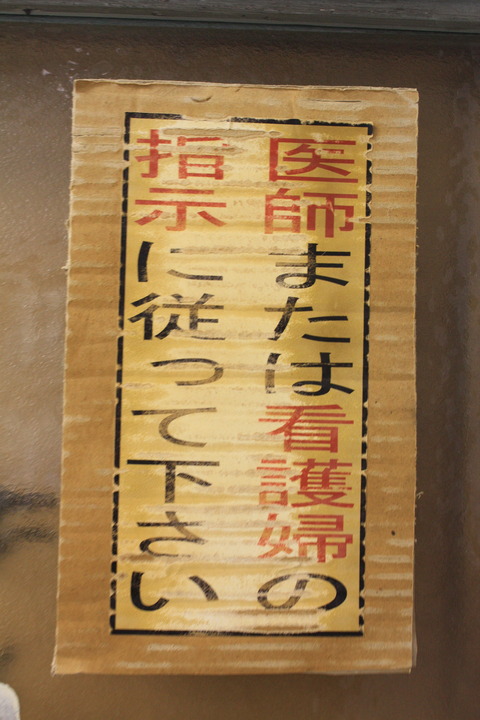 医師または看護婦の
指示に従って下さい